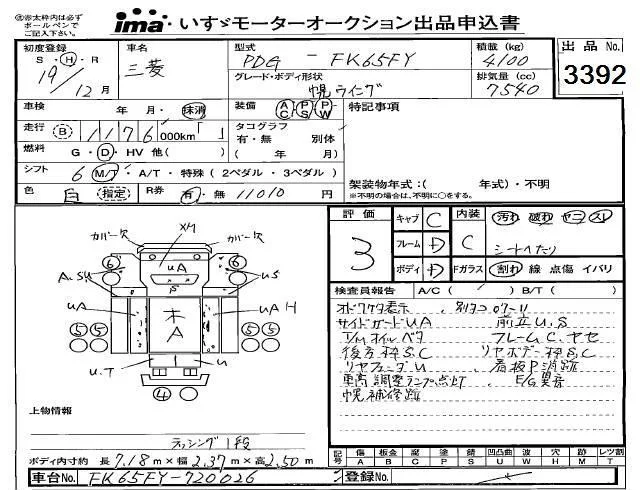 (注)太枠内は必ずボールペンでご記入下さい。
ima いすゞモーターオークション出品申込書
初度登録 S・H・R 19年 12月
車名 三菱
型式 PDG - FK65FY
グレード・ボディ形状 幌ウイング
積載(kg) 4100
排気量(cc) 7540
出品No. 3392
車検 年 月・抹消
装備 AC PS PW
特記事項
走行 B 1176 000km「 」
タコグラフ 有・無 別体
燃料 G・D・HV 他( )
( 年 月)
シフト 6 M/T・A/T・特殊(2ペダル・3ペダル)
架装物年式:( 年式)・不明
※不明の場合は、不明に○をする。
色 白 (指定) R券 有・無 11010円
評価 3
キャブ C 内装 C 汚れ 破れ ヤコゲ スレ
フレーム D シートへたり
ボディ D Fガラス 割れ 線 点傷 イバリ
カバー欠 カバー欠
XM
6 6
A.SU UA US
UA 木 A UA H
5 5 5 5
U.T U
4
検査員報告 A/C( / ) B/T( )
サイドガードUA 前立U.S
T/Mオイルベタ フレームC.ヤセ
後方枠S.C リヤボデー枠S.C
リヤフェンダU 看板P消跡
車高調整ランプ点灯 E/G異音
幌補修跡
上物情報
ラッシング1段
記号 傷A 板金B 腐C 塗P 錆S 凹凸曲U 波W 穴H 跡M レツ割T
ボディ内寸約 長7.18m×幅2.37m×高2.50m
車台No. FK65FY-720026
登録No.